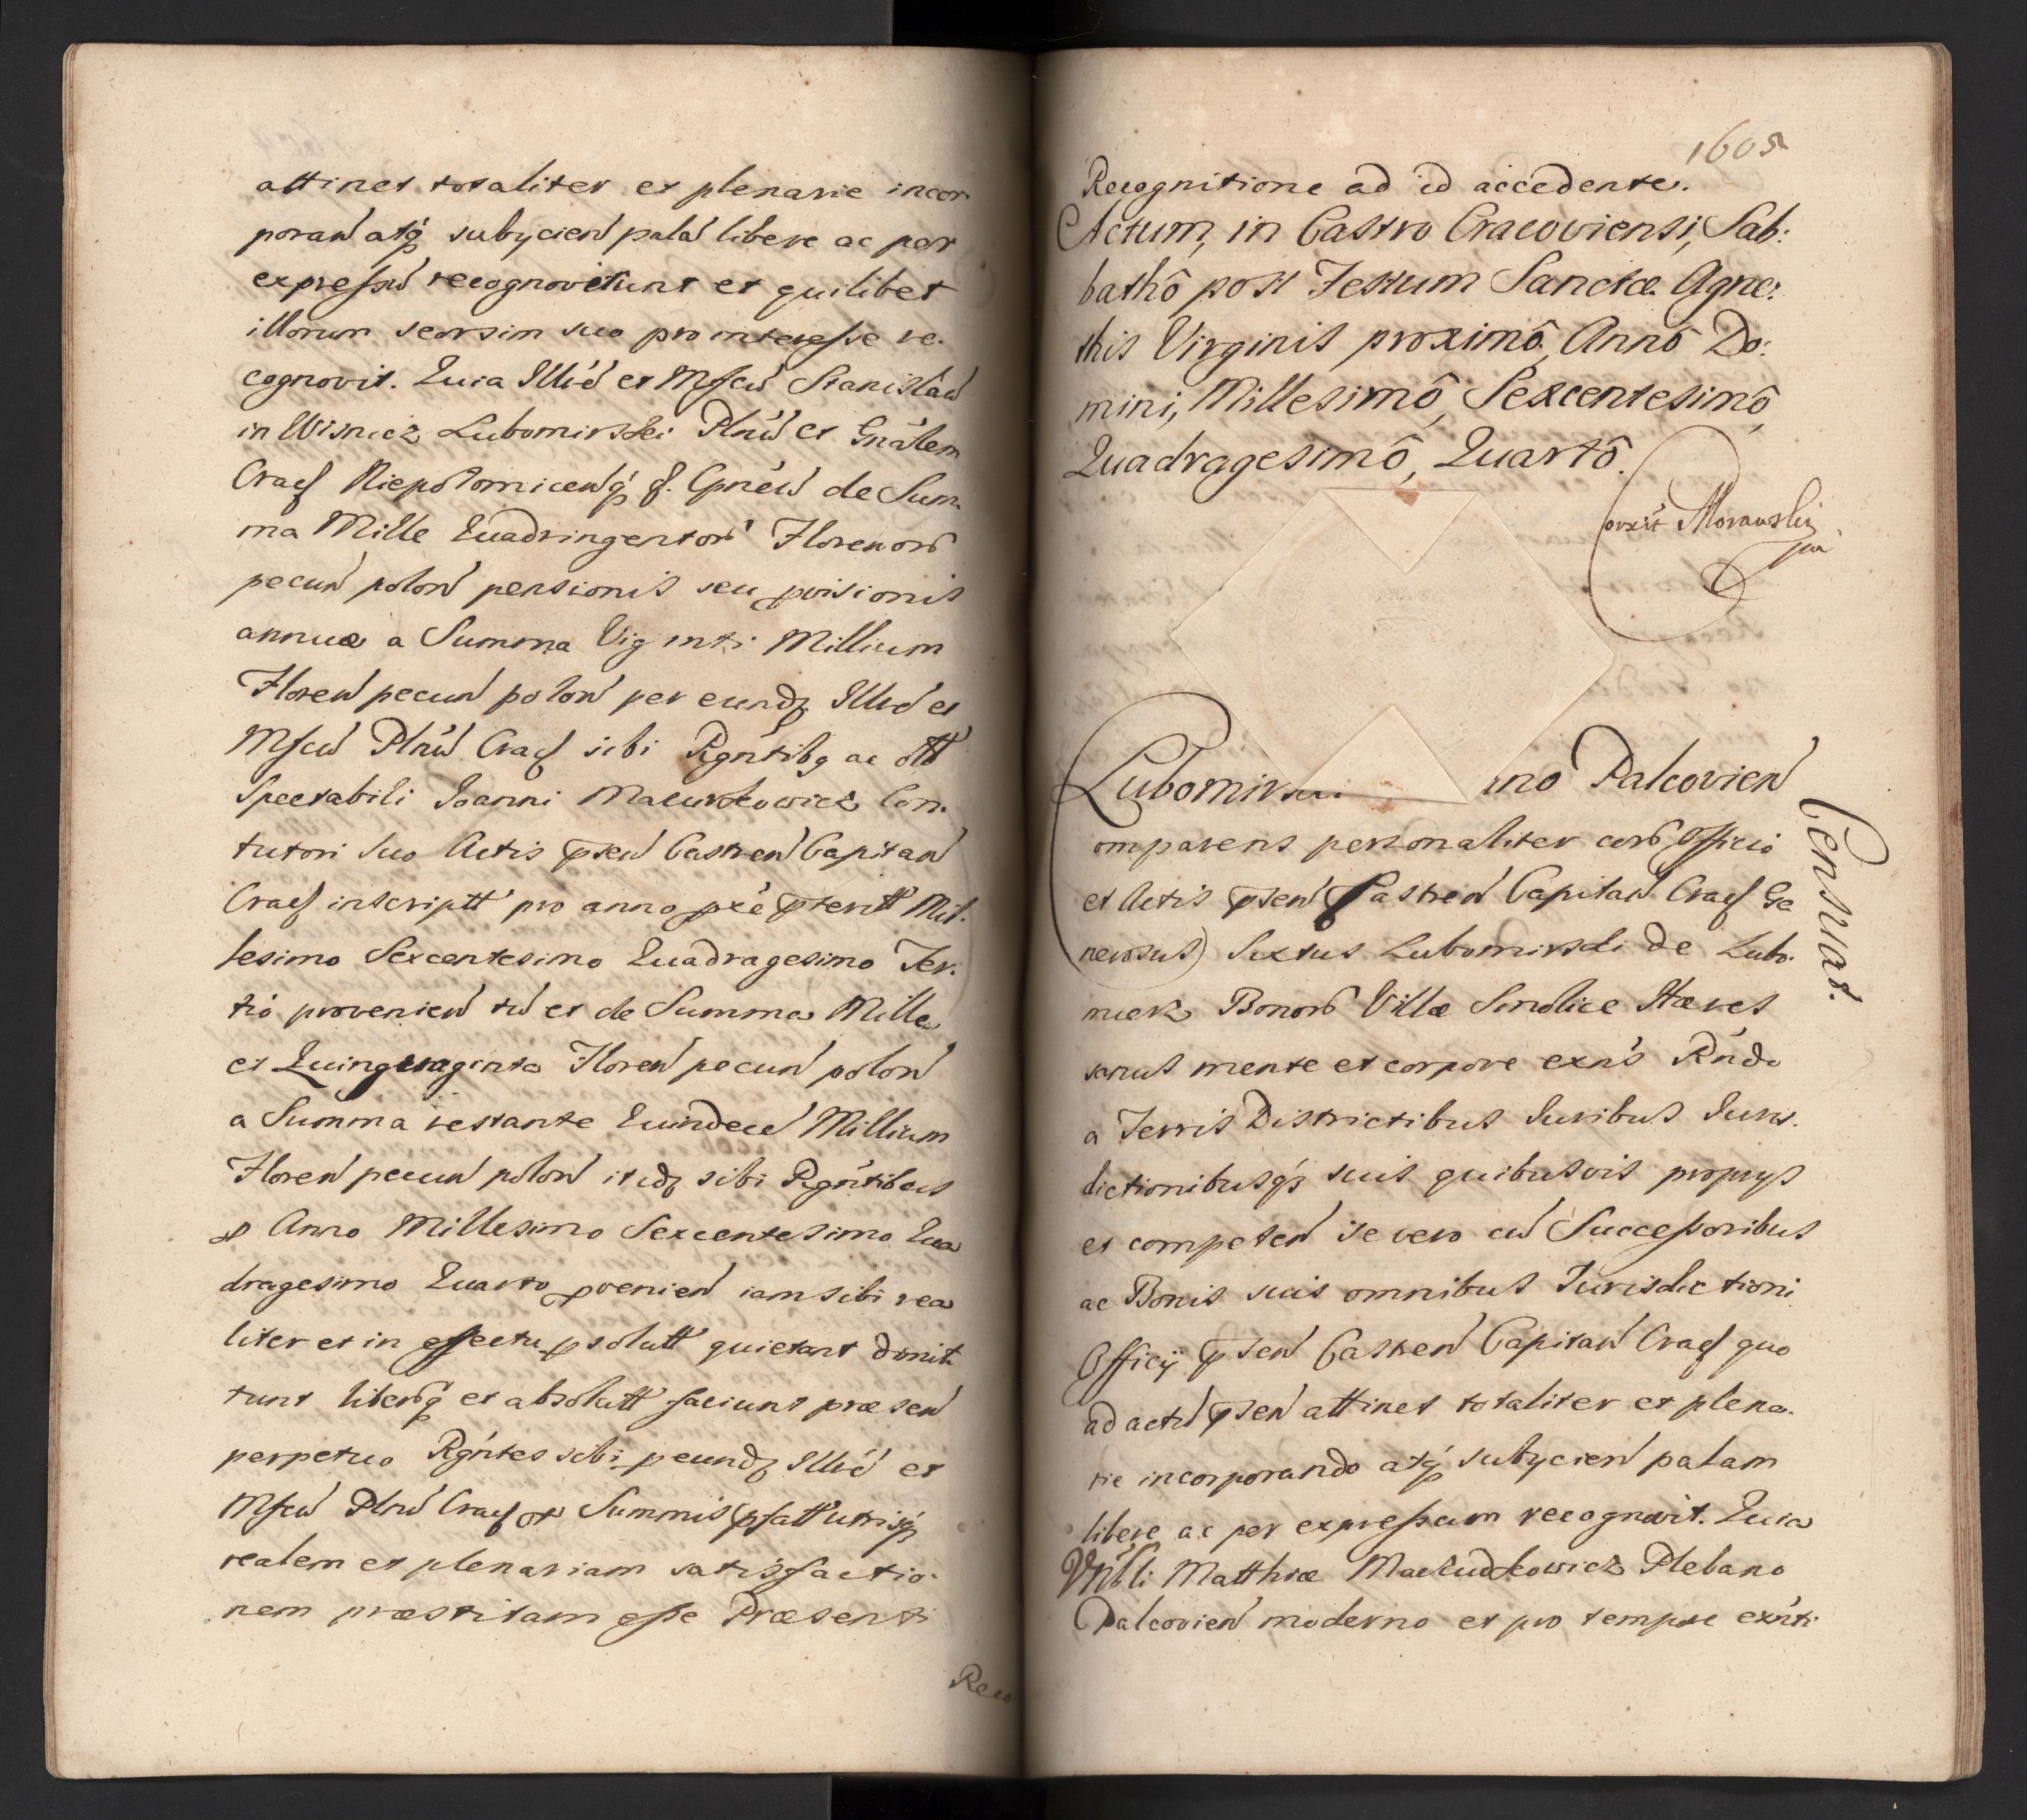 attinet totaliter et plenarie incor
poran̄ atq́ subycien̄ palā libere ac per
expressū recognoverunt et quilibet
illorum seorsim suo pro interesse re.
cognovit. Quia Illr̄ē et Mfcū Stanislaū
in Wisnicz Lubomirski Pltn̄ū et Gnālem
Cracf Niepolomicenq́ f. Gpnēū de Sum
ma Mille Quadringentorū Florenorū
pecun̄ polon̄ pensionis seu provisionis
annuæ a Summa Viginti Millium
Floren̄ pecun̄ polon̄ per eundꝫ Illrē et
Mfcū Pltnū Cracf sibi Rgntibꝫ ac olī
Spectabili Joanni Maczurkowicz Con.
tutori suo Actis pnsen̄ Castren̄ Capitan̄
Cracf inscriptt pro anno pxe pterit Mil.
lesimo Sexcentesimo Quadragesimo Ter.
tio provenien̄ tū et de Summa Mille
et Quinquaginta Floren̄ pecun̄ polon̄
a Summa restante Quindecē Millium
Floren̄ pecun̄ polon̄ itidꝫ sibi Rgntibus
ex Anno Millesimo Sexcentesimo Qua
dragesimo Quarto provenien̄ iam sibi rea
liter et in effectu psolutt quietant dimit
tunt liberosq́ et absolutt faciunt præsen̄
perpetuo Rgntes sibi p eundꝫ Illrē et
Mfcū Pltnū Cracf ex Summis pfatt utrisq́
realem et plenariam satisfactio.
nem præstitam esse Præsenti
Reco
1605
Recognitione ad id accedente.
Actum, in Castro Cracoviensi, Sab:
bathô post Festum Sanctæ Agne:
this Virginis proximô, Annô Do:
mini, Millesimô, Sexcentesimô,
Quadragesimô, Quartô.
Corxit Morawski
mp
Lubomirski no Palcovien̄
Censuat.
Comparens personaliter corā Officio
et Actis pnsen̄ Castren̄ Capitan̄ Cracf Ge
nerosus Sixtus Lubomirski de Lubo.
mierz Bonorū Villæ Smolice Hæres
sanus mente et corpore exn̄s Rn̄do
a Terris Districtibus Juribus Juris.
dictionibusq́ suis quibusvis propriys
et competen̄ se vero cū Successoribus
ac Bonis suis omnibus Jurisdictioni
Officij pnsen̄ Castren̄ Capitan̄ Cracf quo
ad actū pnsen̄ attinet totaliter et plena.
rie incorporando atq́ subycien̄ palam
libere ac per expressum recognovit. Quia
Vn̄bli Matthiæ Maczudkowicz Plebano
Palcovien̄ moderno et pro tempore exn̄ti